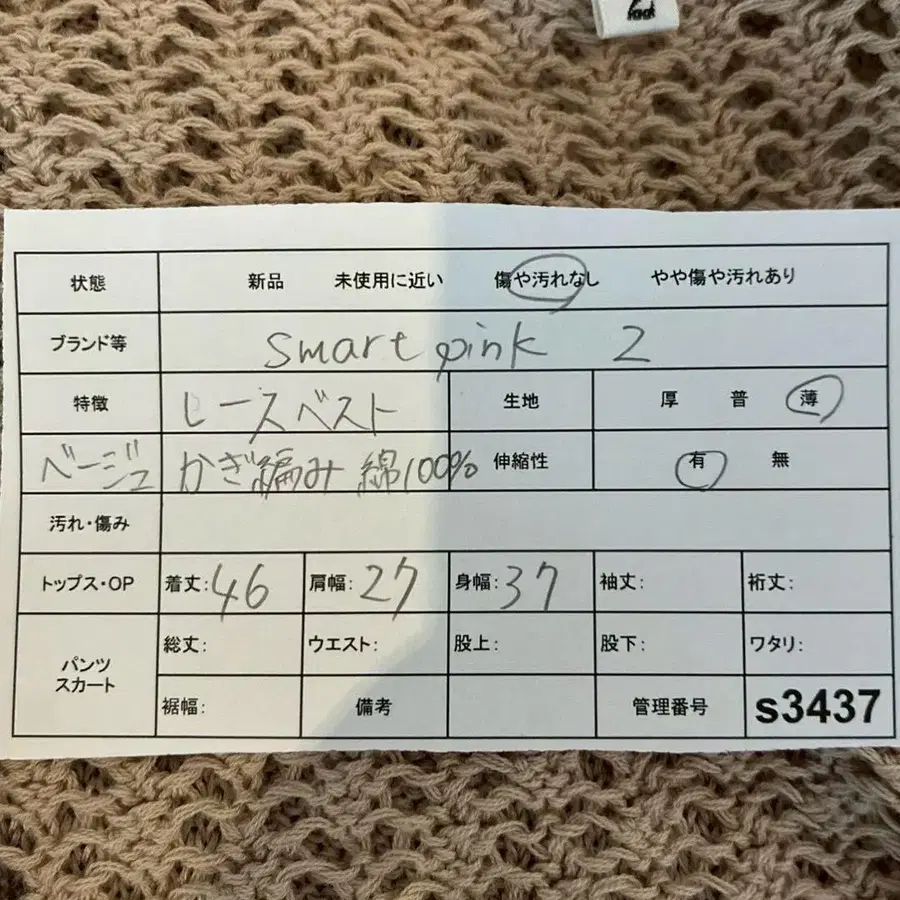 2
状態 新品 未使用に近い 傷や汚れなし やや傷や汚れあり
ブランド等 smart pink 2
特徴 レースベスト 生地 厚 普 薄
ベージュ かぎ編み 綿100% 伸縮性 有 無
汚れ・傷み
トップス・OP 着丈:46 肩幅:27 身幅:37 袖丈: 裄丈:
パンツ スカート 総丈: ウエスト: 股上: 股下: ワタリ:
裾幅: 備考 管理番号 s3437